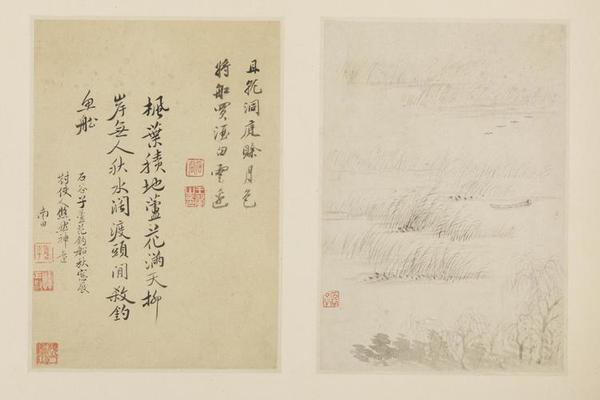 且就洞庭賒月色
將船買酒白雲邊
楓葉積地蘆花滿天柳
岸無人秋水闊渡頭閒殺釣
魚船
石谷子蘆花釣船秋窗展
對使人然神遠
南田